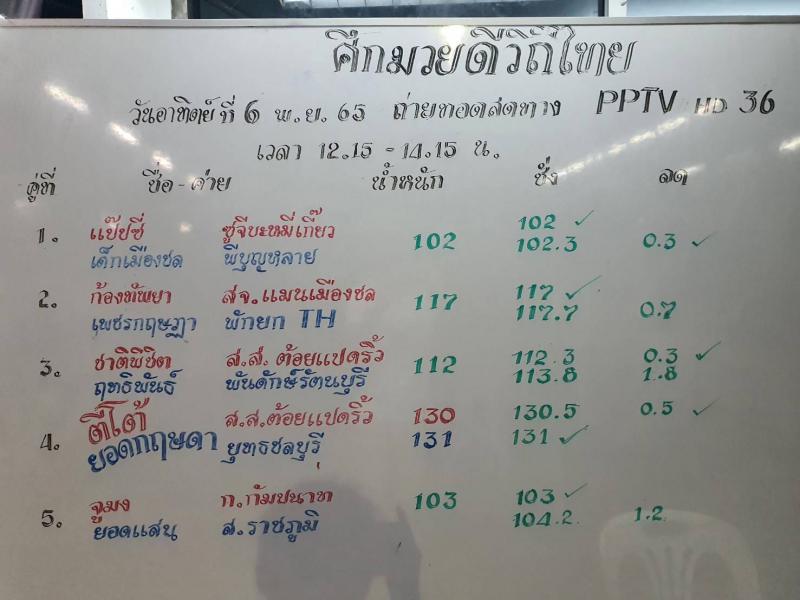 ศึกมวยดีวิถีไทย
วันอาทิตย์ที่ 6 พ.ย. 65 ถ่ายทอดสดทาง PPTV HD 36
เวลา 12.15 - 14.15 น.
คู่ที่ ชื่อ - ค่าย น้ำหนัก ชั่ง ลด
1. แป๊ปซี่ ซูจีบะหมี่เกี๊ยว 102 102 ✓
เด็กเมืองชล พีบุญหลาย 102.3 0.3 ✓
2. ก้องทัพยา สจ.แมนเมืองชล 117 117 ✓
เพชรกฤษฎา พักยก TH 117.7 0.7
3. ชาติพิชิต ส.ส. ต้อยแปดริ้ว 112 112.3 0.3 ✓
ฤทธิพันธ์ พันดักษ์รัตนบุรี 113.8 1.8
4. ตีโต้ ส.ส.ต้อยแปดริ้ว 130 130.5 0.5 ✓
ยอดกฤษดา ยุทธชลบุรี 131 131 ✓
5. จูมง ก.กัมปนาท 103 103 ✓
ยอดแสน ส.ราชภูมิ 104.2 1.2